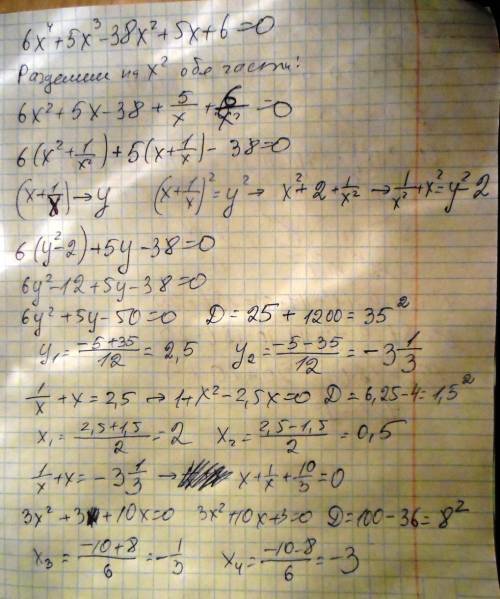 6x⁴+5x³-38x²+5x+6=0
Разделим на x² обе части:
6x²+5x-38+5/x+6/x²=0
6(x²+1/x²)+5(x+1/x)-38=0
(x+1/x)→y (x+1/x)²=y²→ x²+2+1/x² →1/x²+x²=y²-2
6(y²-2)+5y-38=0
6y²-12+5y-38=0
6y²+5y-50=0 D=25+1200=35²
y₁=(-5+35)/12=2,5 y₂=(-5-35)/12=-3 1/3
1/x+x=2,5 →1+x²-2,5x=0 D=6,25-4=1,5²
x₁=(2,5+1,5)/2=2 x₂=(2,5-1,5)/2=0,5
1/x+x=-3 1/3 → x+1/x+10/3=0
3x²+3+10x=0 3x²+10x+3=0 D=100-36=8²
x₃=(-10+8)/6=-1/3 x₄=(-10-8)/6=-3